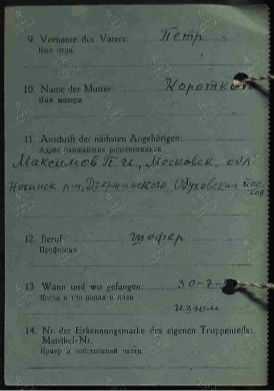 9. Vorname des Vaters: Петр
Имя отца
10. Name der Mutter: Коротк
Имя матери
11. Anschrift der nächsten Angehörigen:
Адрес ближайших родственников
Максимов П. И., Московск. обл
Ногинск р-н, Дзержинского, Обуховский пос
12. Beruf: шофер
Профессия
13 Wann und wo gefangen: 30-7-
Когда и где попал в плен
изюм
14. Nr. der Erkennungsmarke des eigenen Truppenteils:
Matrikel-Nr.
Номер и собственной части